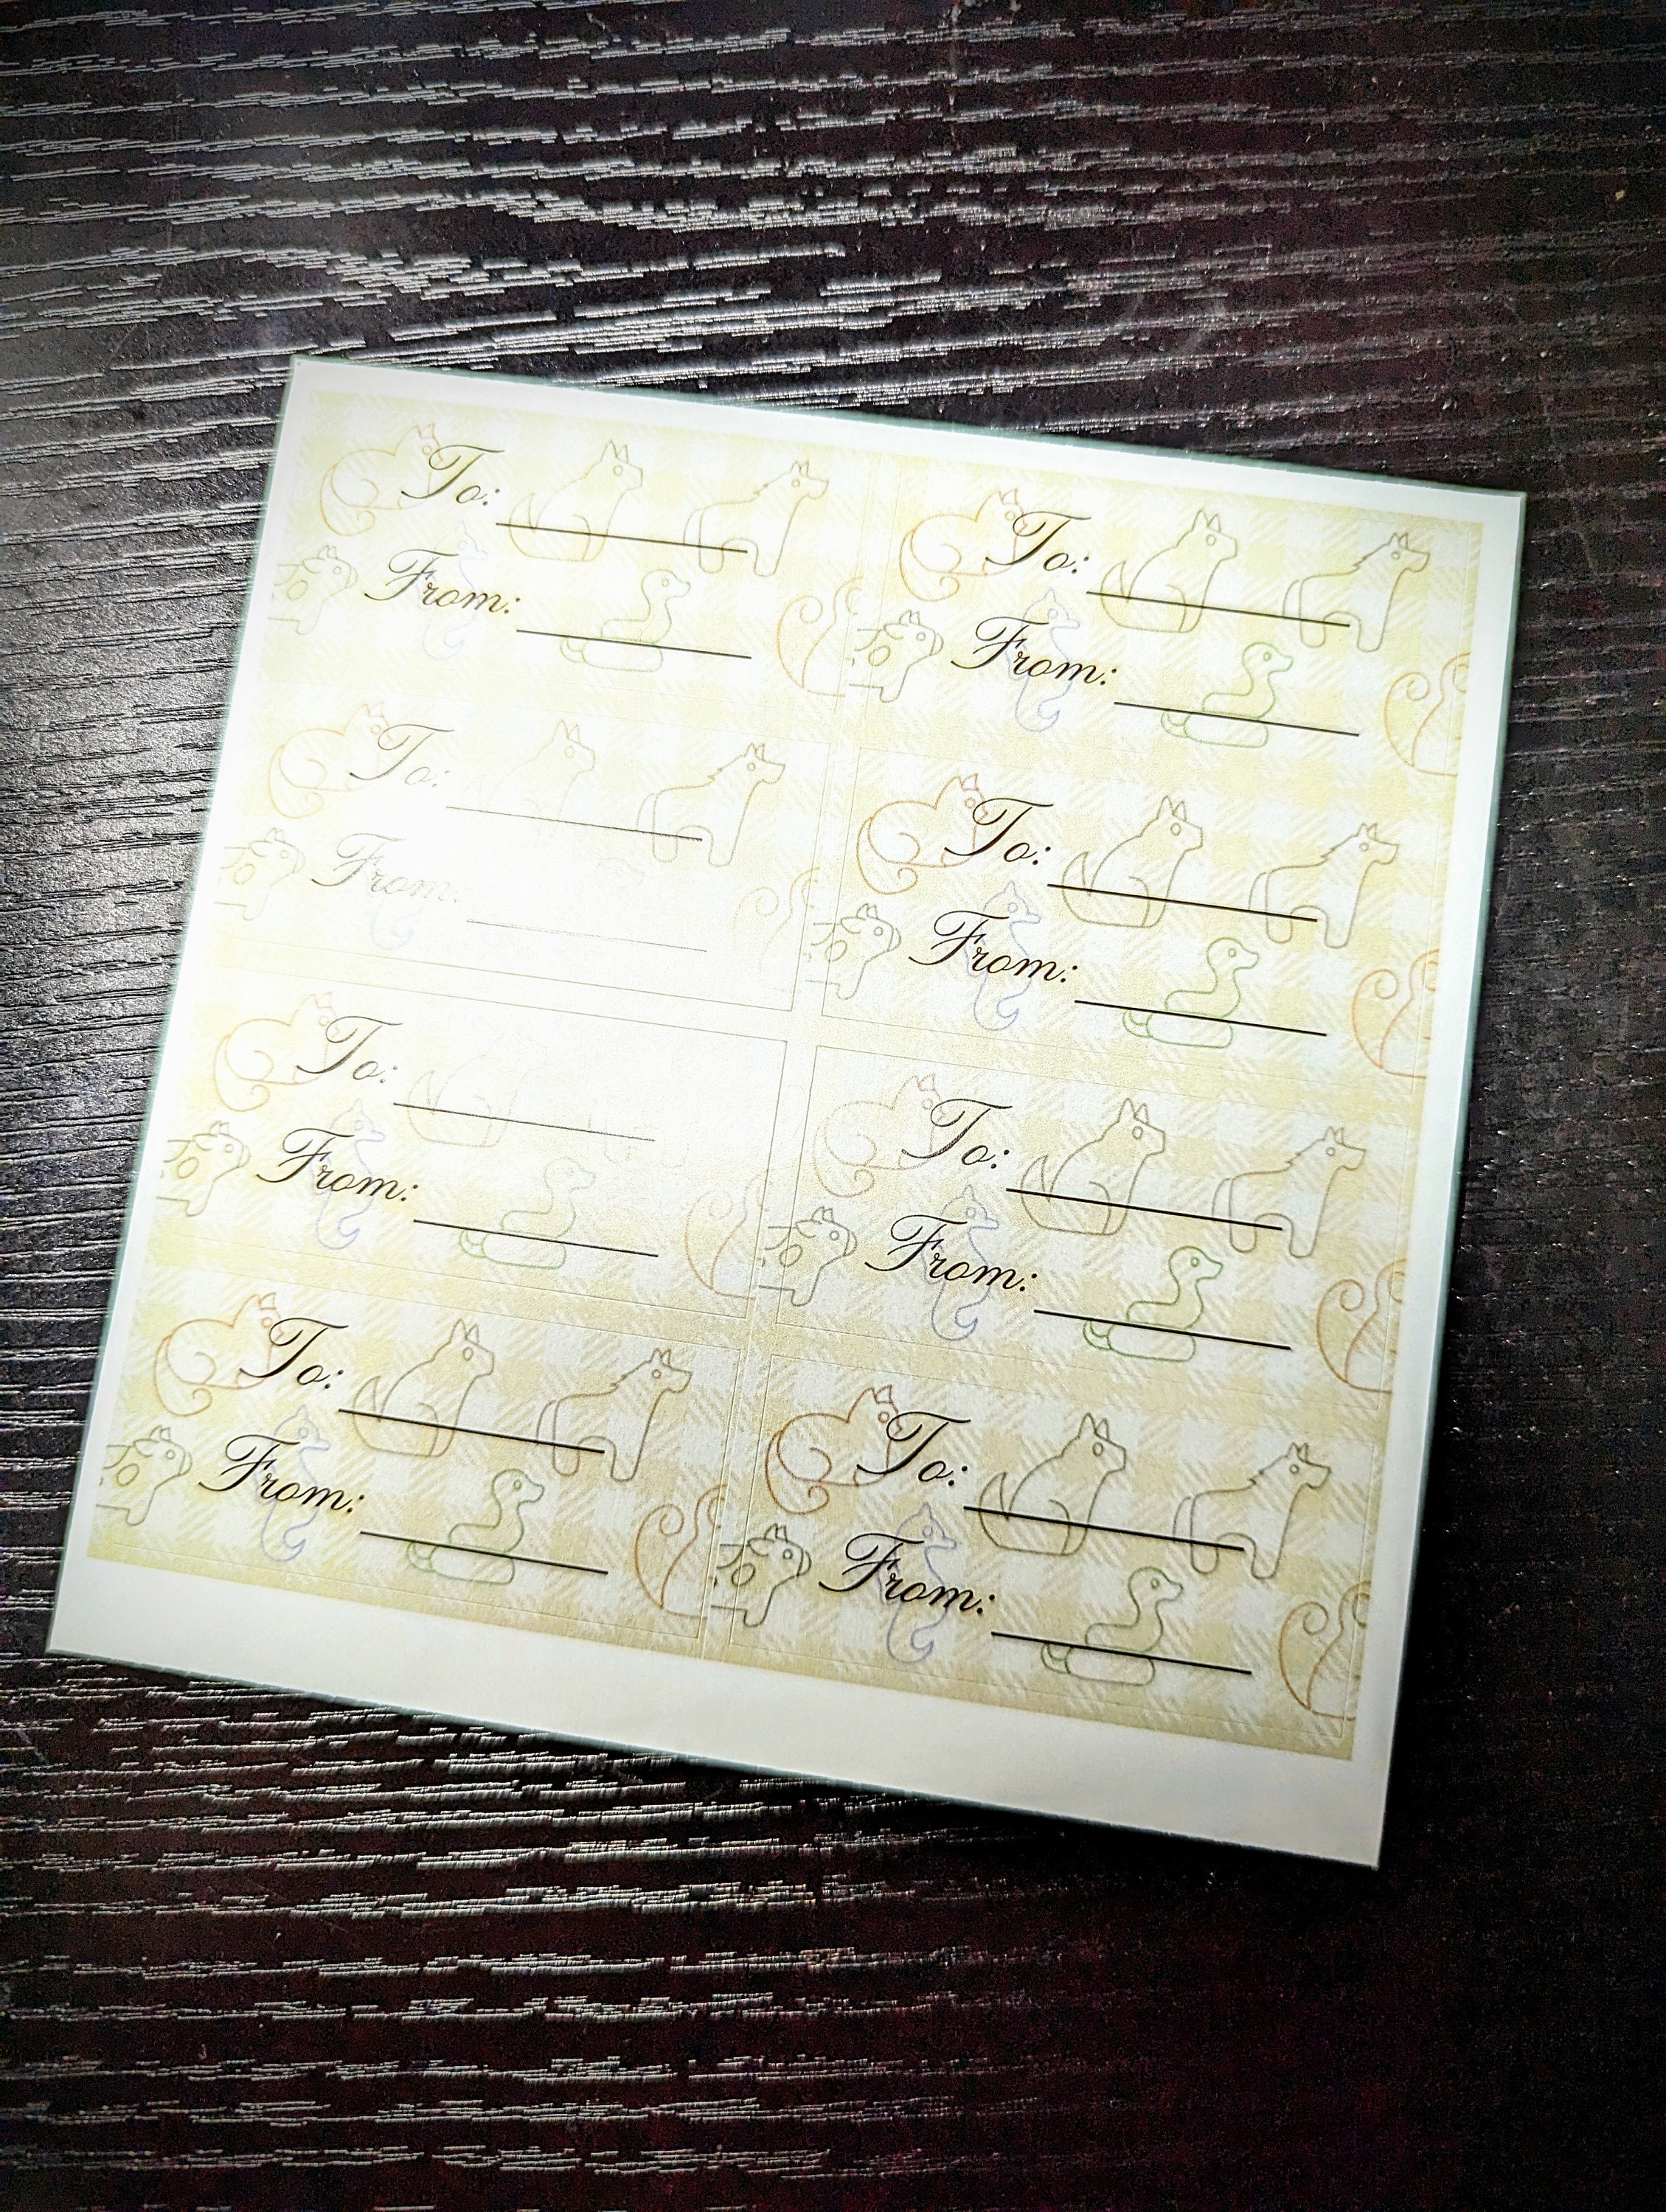 To:
From:
To:
From:
To:
From:
To:
From:
To:
From:
To:
From:
To:
From:
To:
From: